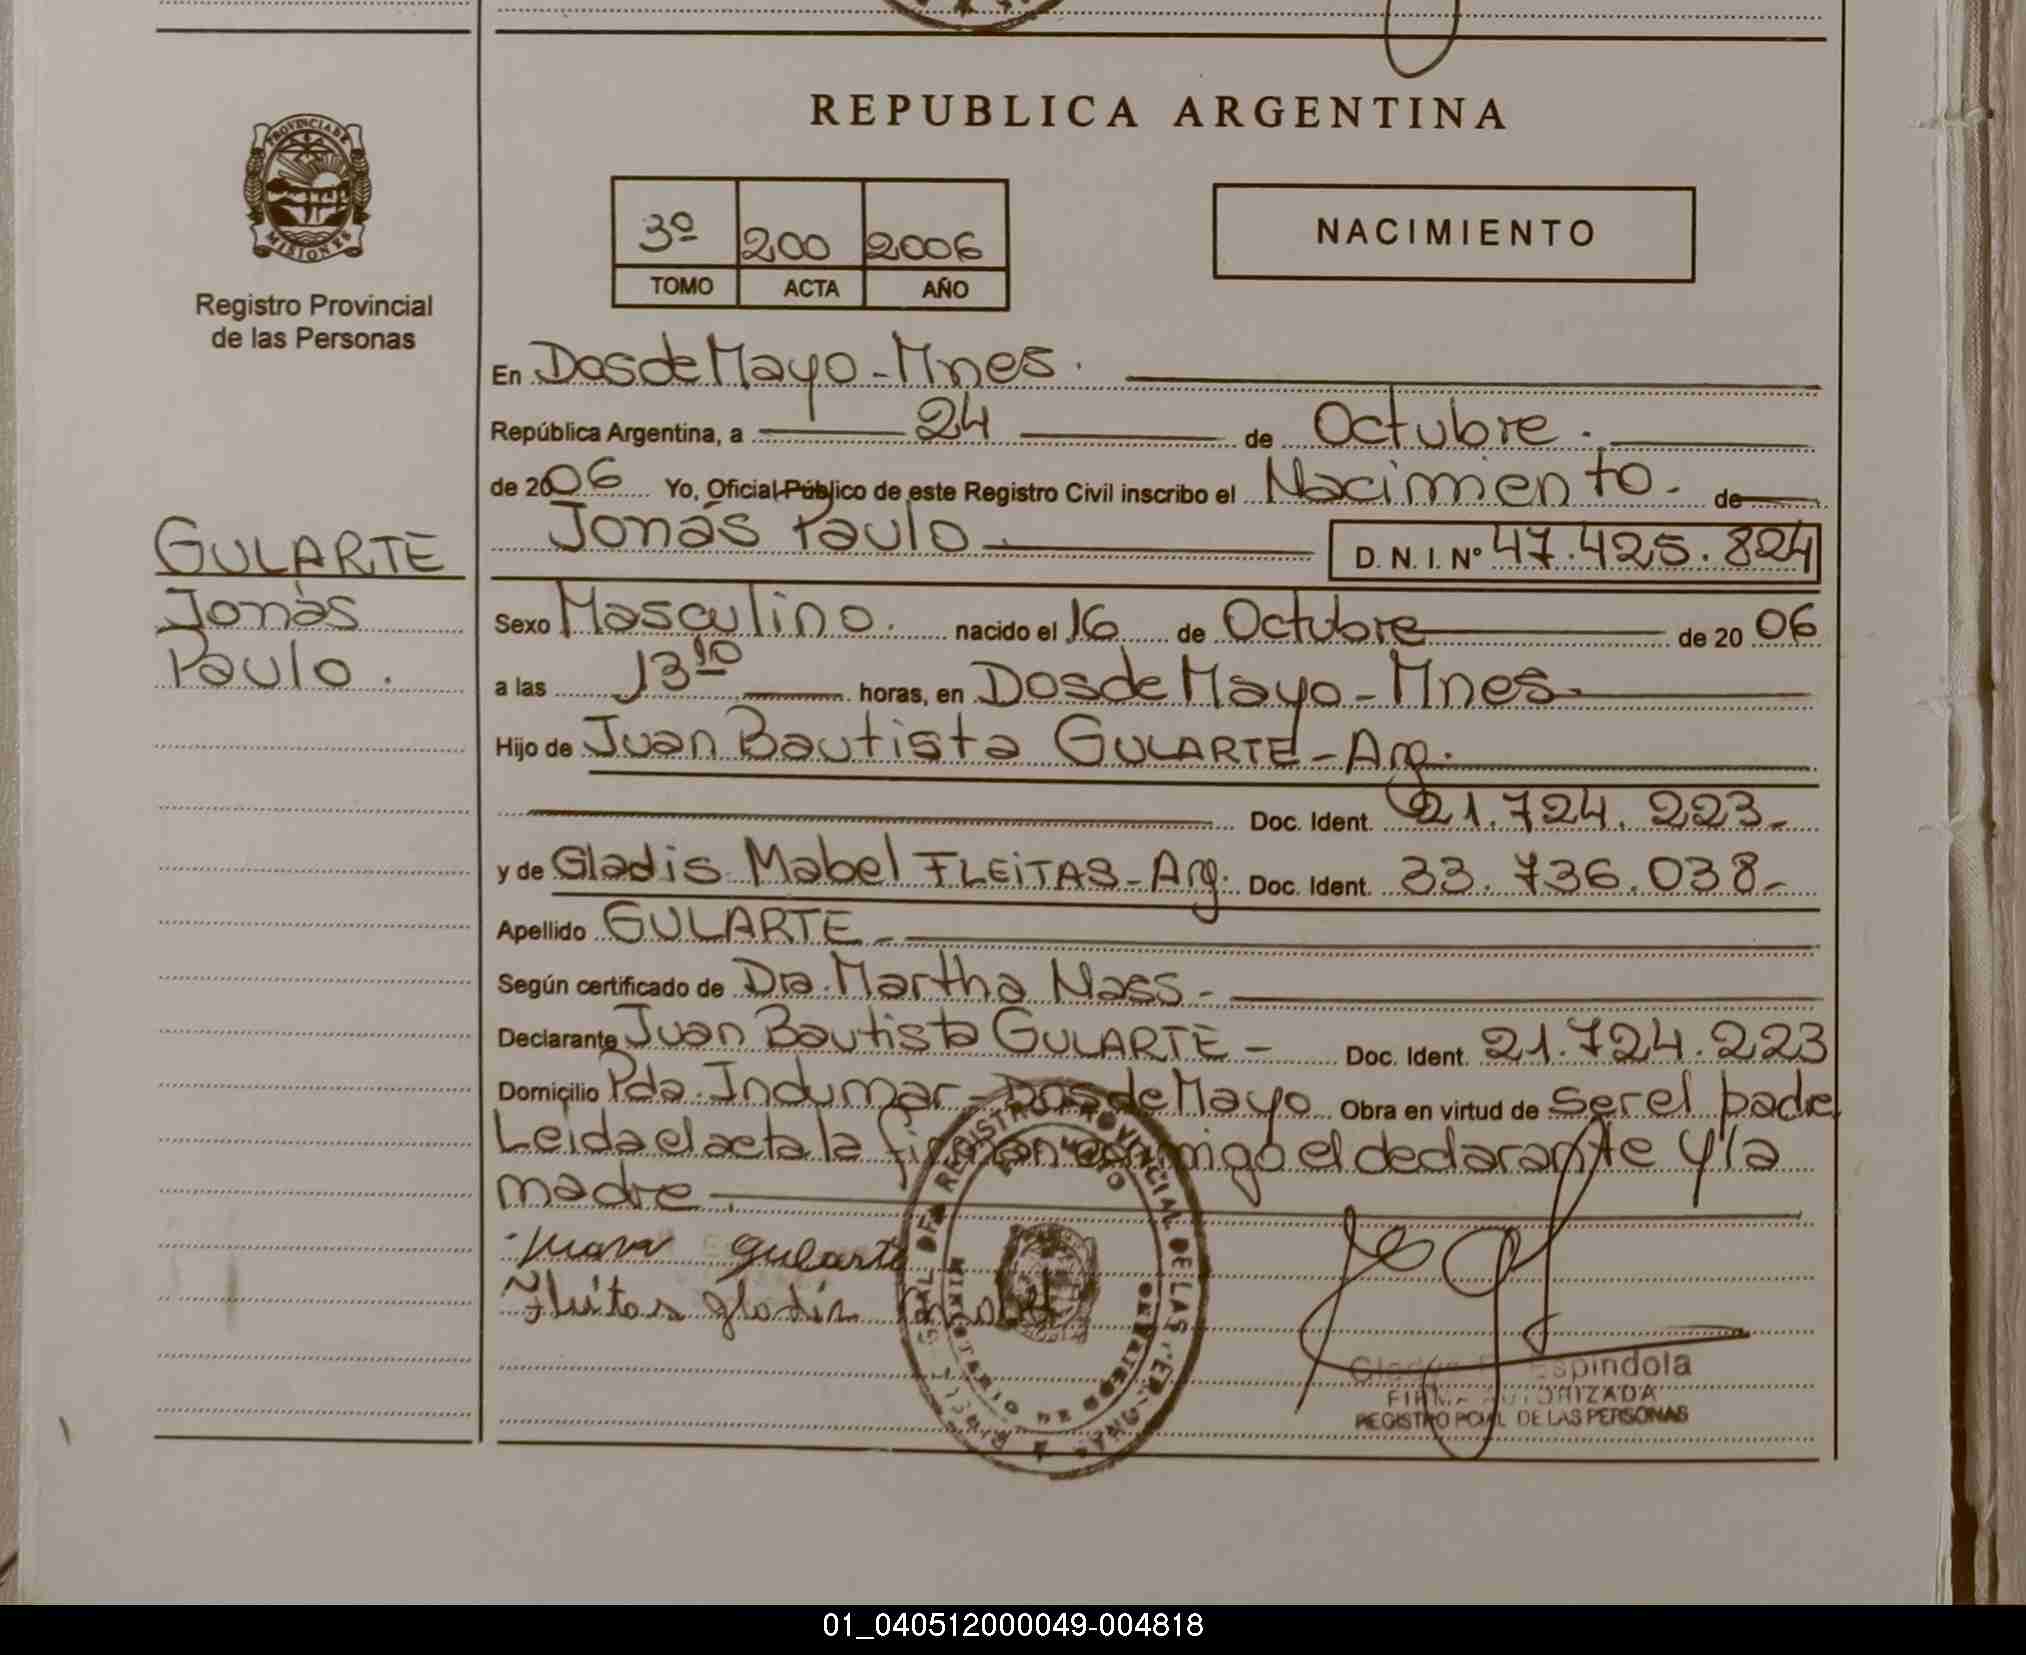 REPUBLICA ARGENTINA
PROVINCIA DE
MISIONES
Registro Provincial
de las Personas
3º 200 2006
TOMO ACTA AÑO
NACIMIENTO
En Dos de Mayo - Mnes.
República Argentina, a 24 de Octubre.
de 2006 Yo, Oficial Público de este Registro Civil inscribo el Nacimiento. de
Jonás Paulo D. N. I. Nº 47.425.824
GULARTE
Jonás
Paulo.
Sexo Masculino. nacido el 16 de Octubre de 20 06
a las 13 10 horas, en Dos de Mayo - Mnes.
Hijo de Juan Bautista GULARTE - Arg.
Doc. Ident. 21.724.223-
y de Gladis Mabel FLEITAS - Arg. Doc. Ident. 33.736.038-
Apellido GULARTE -
Según certificado de Dra. Martha Nass -
Declarante Juan Bautista GULARTE - Doc. Ident. 21.724.223
Domicilio Pda. Indumar - Dos de Mayo Obra en virtud de ser el padre
Leida el acta la firman conmigo el declarante y la
madre.
Juan Gularte
Fleitas gladis
REGISTRO PROVINCIAL DE LAS PERSONAS
MINISTERIO DE GOBIERNO
Espindola
FIRMA AUTORIZADA
REGISTRO PCIAL DE LAS PERSONAS
01_040512000049-004818